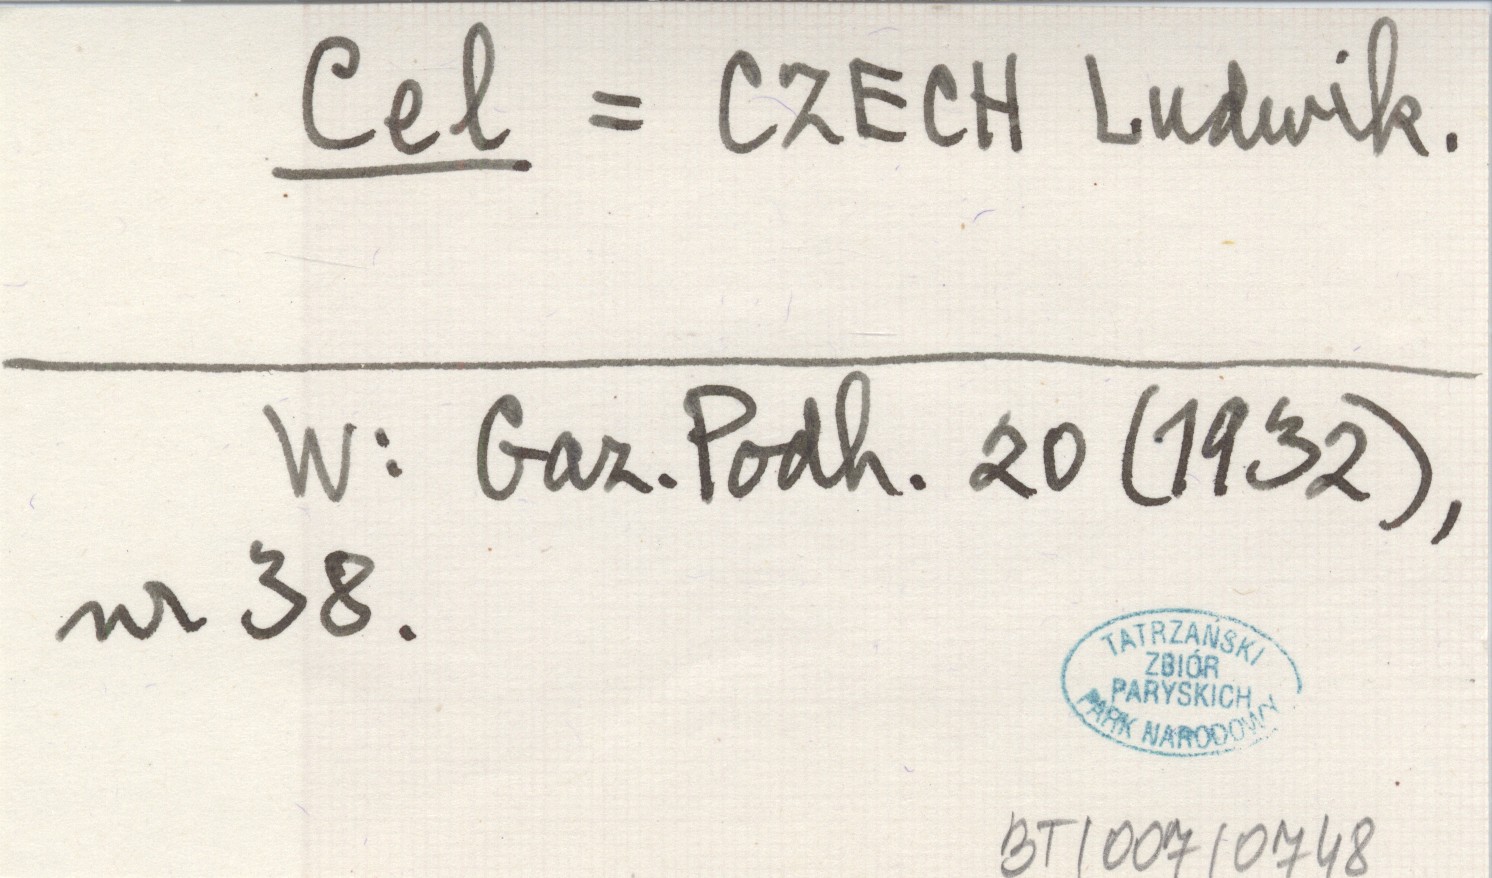 Cel = CZECH Ludwik.
W: Gaz. Podh. 20 (1932),
nr 38.
TATRZAŃSKI
ZBIÓR
PARYSKICH
PARK NARODOWY
BT/007/0748